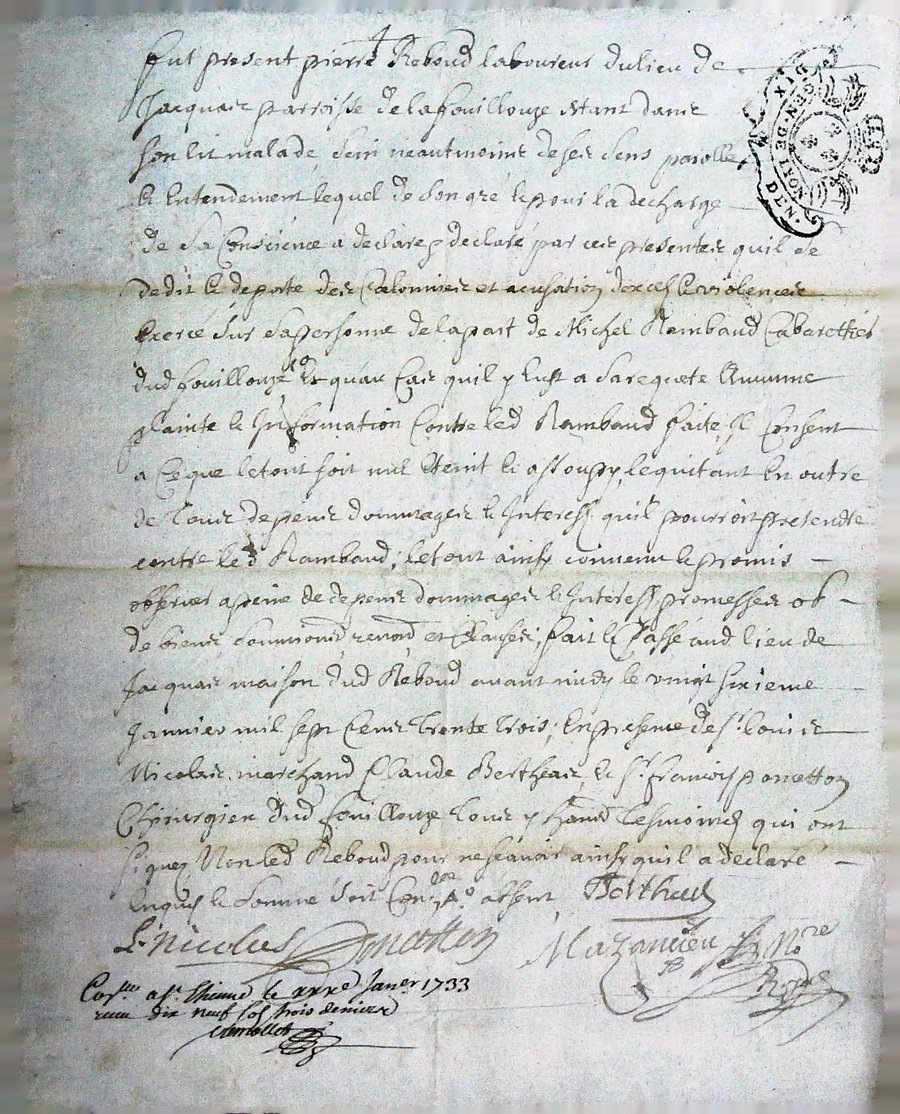 Fut present pierre Reboud laboureur du lieu de
Jacquais parroisse de la fouillouze estant dans
son lit malade, sain neautmoins de ses sens parolle
& Entendement lequel de son gré & pour la decharge
de sa Conscience a declare & declare par ces presentes quil se
dedit & deporte des Calomnies et acusation dexces & violences
Exercé sur sa personne de la part de Michel Rambaud Cabarettier
dud fouillouze Et quau Cas quil y Eust a sa requete Aucunne
plainte & Information Contre led Rambaud faite, Il Consent
a Ceque le tout soit nul Eteint & assoupy, lequitant En outre
de Tous depens dommages & Interess quil pourroit pretendre
contre led Rambaud; le tout ainsy convenu & promis
observer a peine de depens dommages & Interess, promesses ob
de biens renond et Clauses; fait & Passé aud lieu de
Jacquais maison dud Reboud avant midy le vingt sixieme
Janvier mil sept Cens trente trois; En presence de sr. louis
Nicolas marchand Claude Bertheas, & sr. francois ponetton
Chirurgien dud fouillouze Tous y tesmoins qui ont
signez Non led Reboud pour ne scavoir ainsy quil a declaré
Enquis & somme Berthead
L. Nicolas Ponetton Mazancieu Nre
a st. Etienne le xxxe Janer 1733
receu dix neuf sols trois deniers
GEN. DE LYON. DIX DEN.